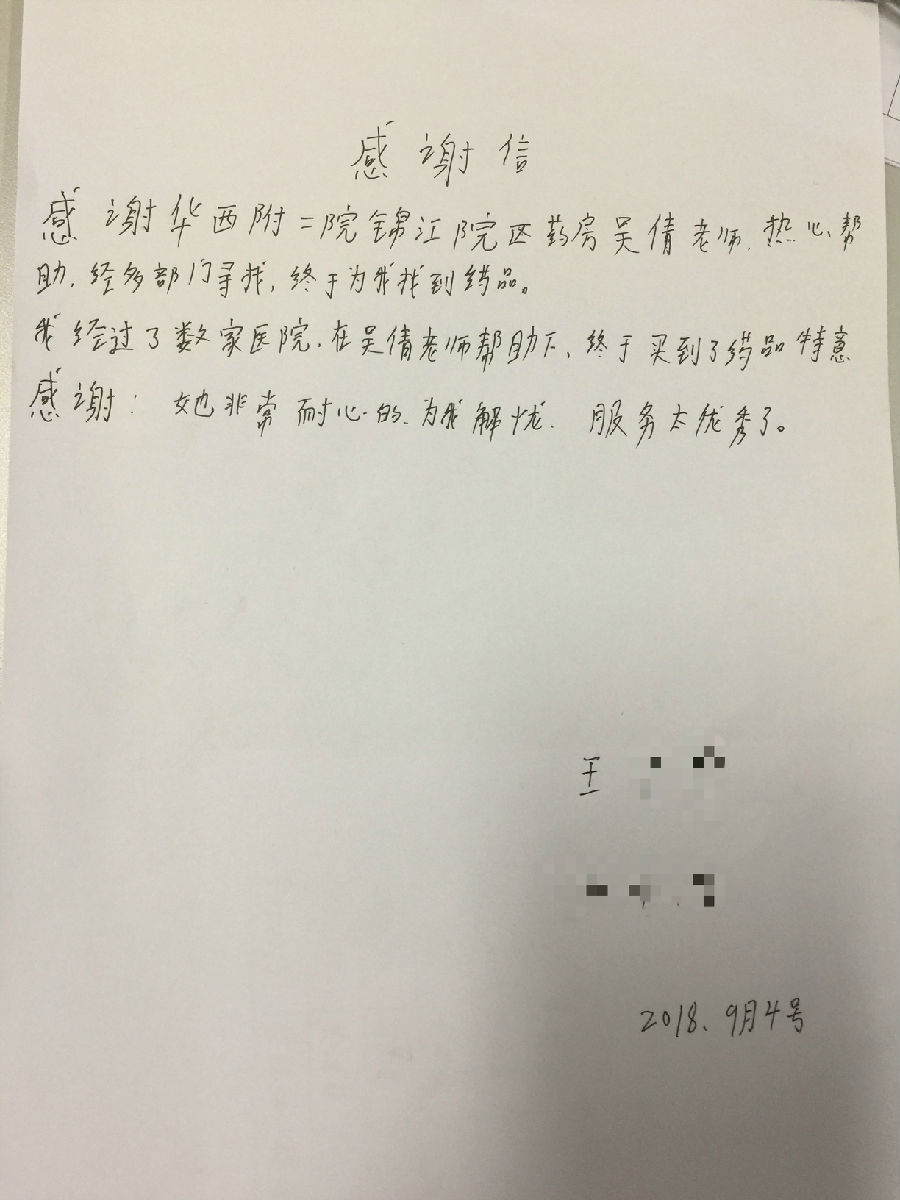 感谢信
感谢华西附二院锦江院区药房吴倩老师,热心帮
助,经多部门寻找,终于为我找到药品。
我经过了数家医院,在吴倩老师帮助下,终于买到了药品特意
感谢:她非常耐心的,为我解忧.服务太优秀了。
王
2018、9月4号